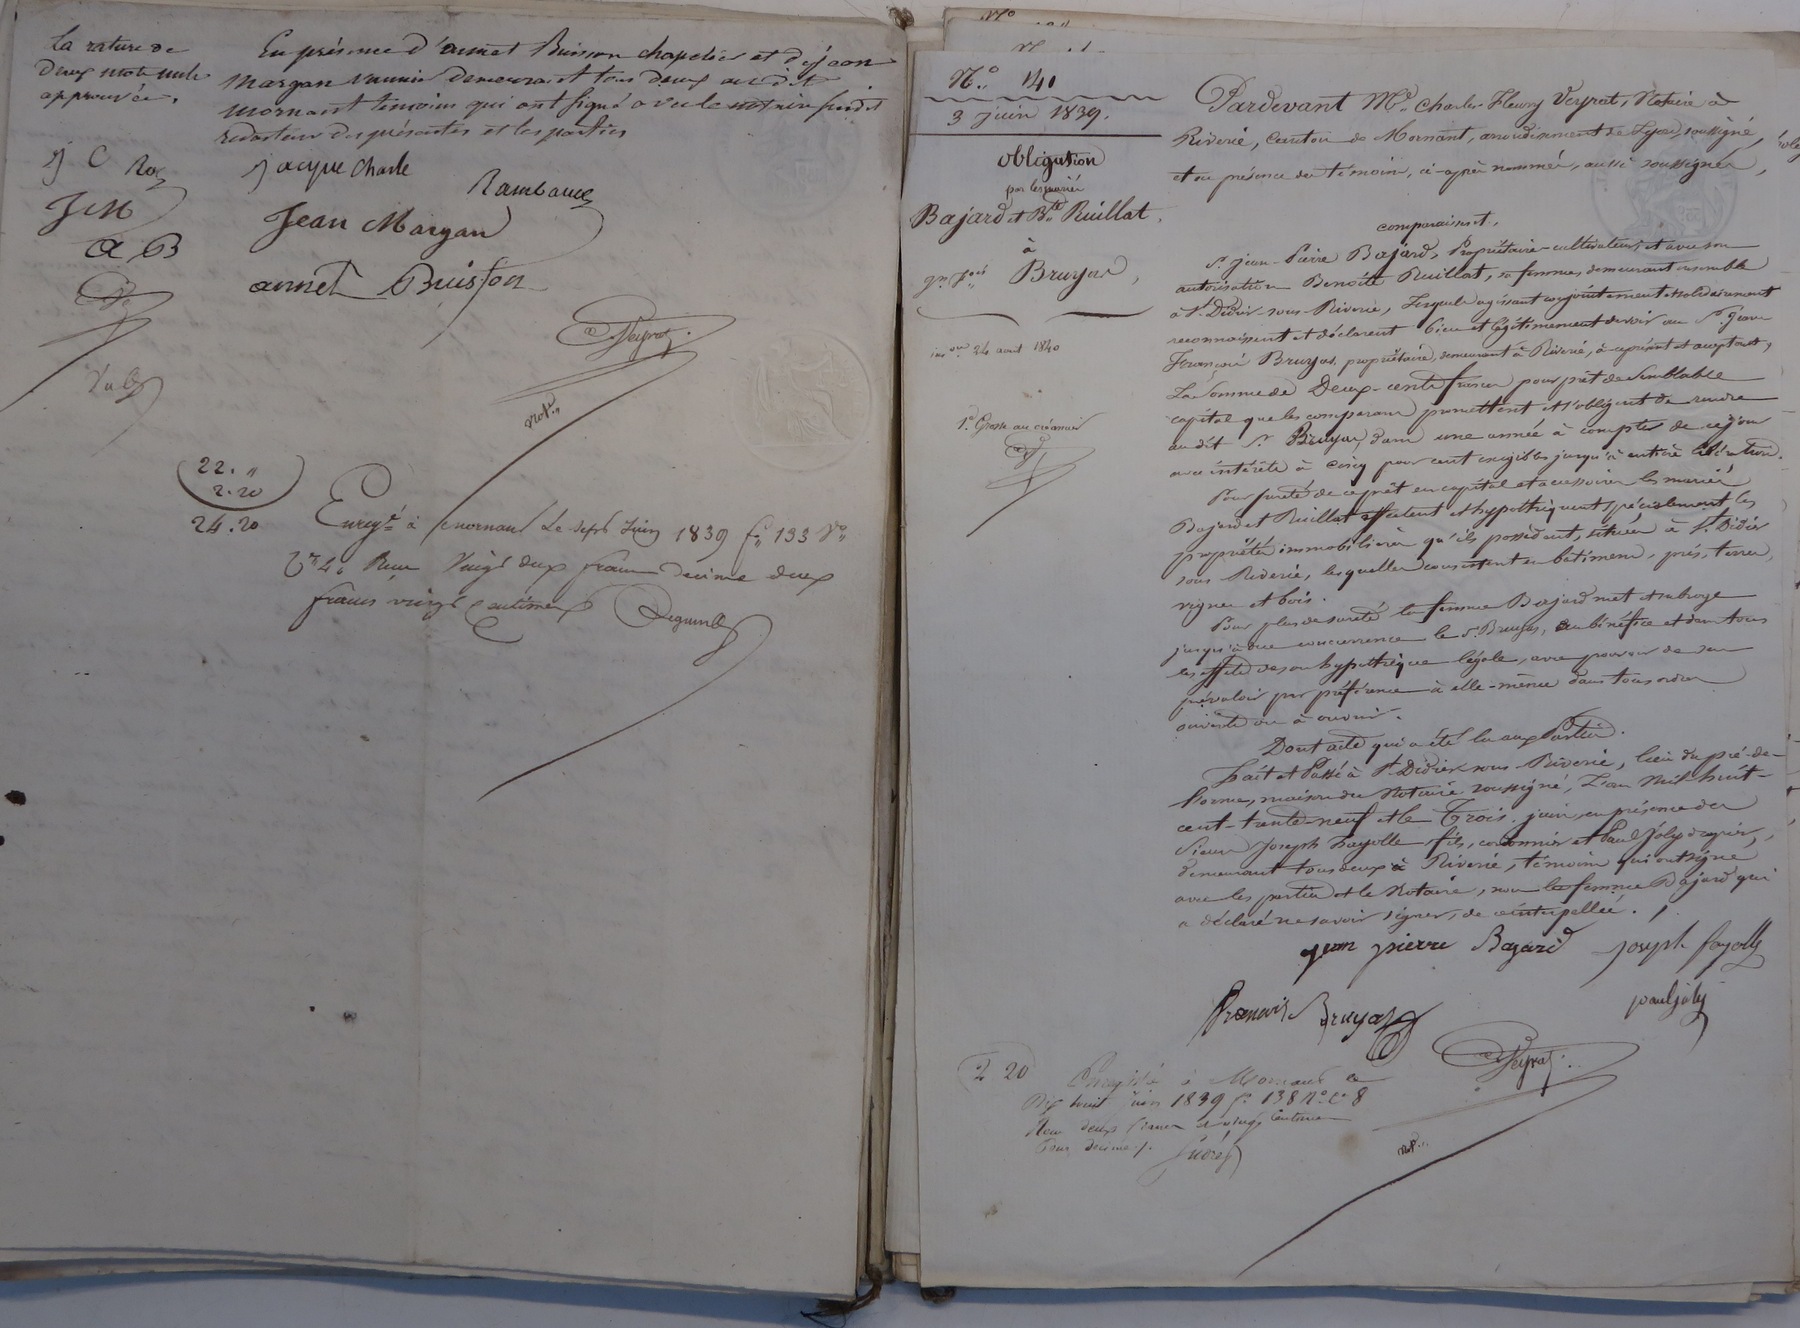 la rature de
deux mots nuls
approuvée.
En présence d'annet Buisson chapelier et de jean
Margan demeurant tous deux audit
Mornant temoins qui ont signé avec le notaire
redacteur des présentes et les parties
j C Ro
JM
a B
jacque Charle
Rambaud
Jean Margan
annet Buisson
Veyrat
22. "
2.20
24.20
Enregé à mornant le sept juin 1839 fo 133 Vo
Reçu vingt deux francs decime deux
francs vingt centimes
No 140
3 juin 1839.
obligation
par les mariés
Bajard et Bte Ruillat.
à
Bruyas,
24 aout 1840
1e Grosse au créancier
Pardevant Me Charles Fleury Veyrat, Notaire à
Riverie, Canton de Mornant, arrondissement de Lyon, soussigné,
et en présence des témoins, ci-après nommés, aussi soussignés,
comparaissent,
Sr. jean-Pierre Bajard, Propriétaire-cultivateur, et avec son
autorisation Benoite Ruillat, sa femme, demeurant ensemble
à St. Didier-sous-Riverie, lesquels agissant conjointement et solidairement
reconnaissent et déclarent bien et légitimement devoir au Sr. jean
François Bruyas, propriétaire, demeurant à Riverie, à ce présent et acceptant,
La Somme de Deux-cents francs pour prêt de semblable
capital que les comparans promettent et s'obligent de rendre
audit Sr. Bruyas, dans une année à compter de ce jour
avec intérêts à cinq pour cent exigibles jusqu'à entière libération.
Pour sureté de ce prêt en capital et accessoires les mariés
Bajard et Ruillat affectent et hypothèquent spécialement les
propriétés immobilières qu'ils possèdent, situées à St. Didier
sous Riverie, lesquelles consistent en bâtimens, prés, terres,
vignes et bois.
Pour plus de sureté la femme Bajard met et subroge
jusqu'à due concurrence le Sr. Bruyas, au bénéfice et dans tous
les effets de son hypothèque légale, avec pouvoir de s'en
prévaloir par préférence à elle-même dans tous ordres
ouverts ou à ouvrir.
Dont acte qui a été lu aux Parties.
Fait et Passé à St. Didier sous-Riverie, lieu du pré-de-
maison du Notaire soussigné, L'an Mil huit-
cent-trente-neuf et le Trois juin, en présence des
Sieurs Joseph Fayolle fils, cordonnier et Paul Joly
demeurant tous deux à Riverie, témoins qui ont signé
avec les parties et le Notaire, non la femme Bajard qui
a déclaré ne savoir signer, de ce interpellée.
jean pierre Bajard
joseph fayolle
Francois Bruyas
paul joly
Veyrat
2 20
Enregistré à Mornant le
Dix huit juin 1839 fo 138 Vo Ce 8
Reçu deux francs et vingt centimes
pour decime.